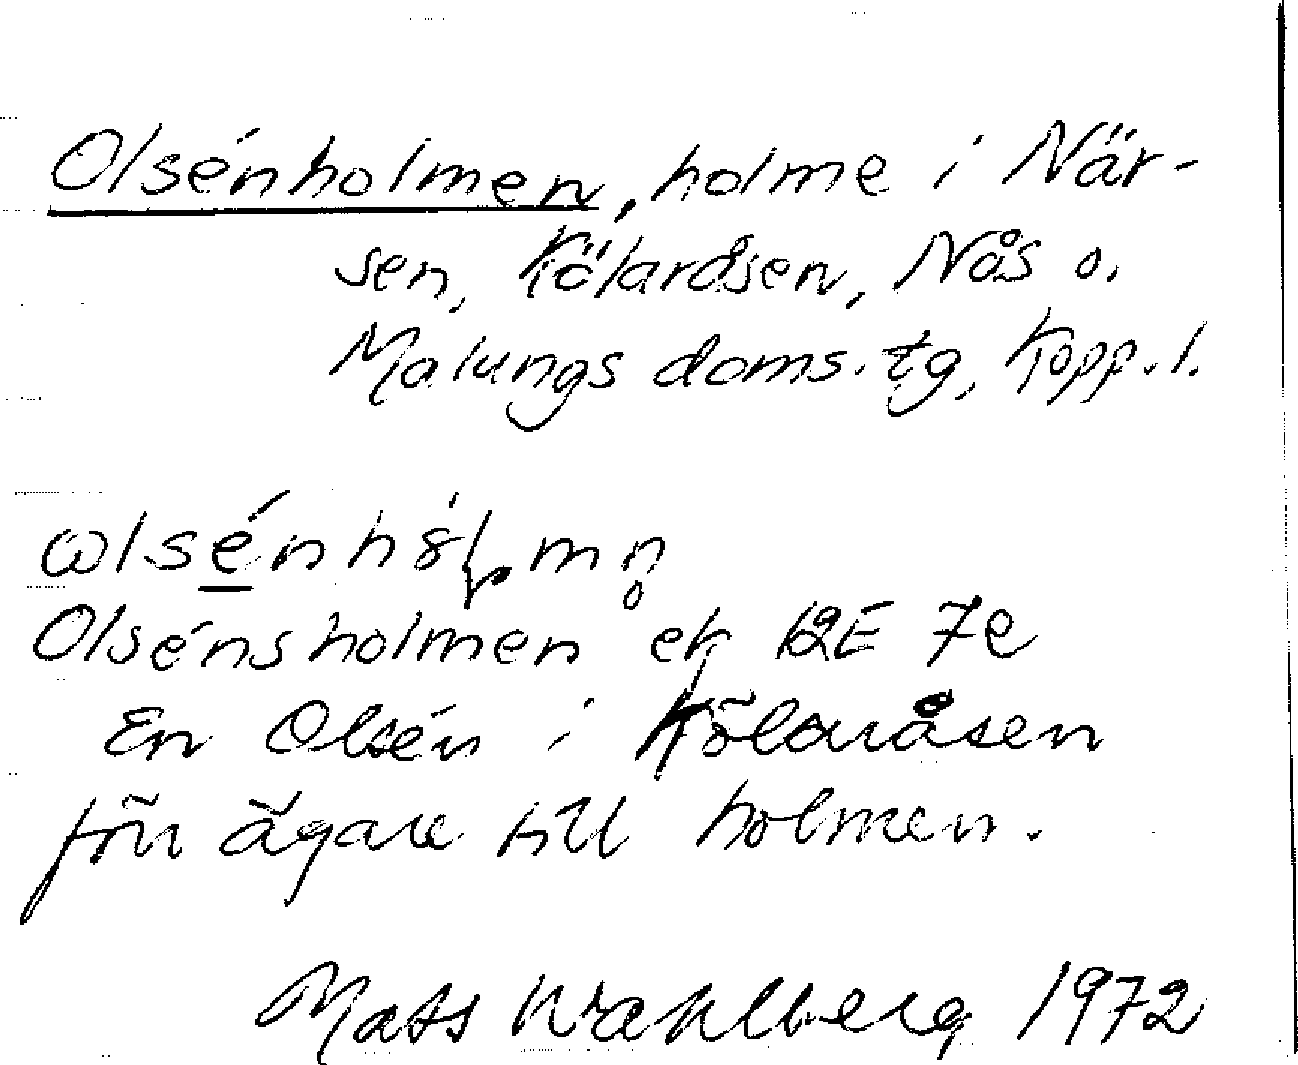 Olsénholmen, holme i När-
sen, Kölaråsen, Nås o.
Malungs doms. tg, Kopp. l.
Olsénsholmen ek 12E 7e
En Olsén i Kölaråsen
förr ägare till holmen.
Mats Wahlberg 1972